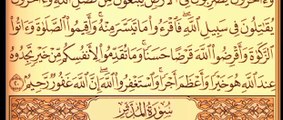 وَءَاخَرُونَ يَضْرِبُونَ فِي ٱلْأَرْضِ يَبْتَغُونَ مِن فَضْلِ ٱللَّهِ وَءَاخَرُونَ
يُقَٰتِلُونَ فِي سَبِيلِ ٱللَّهِ فَٱقْرَءُوا۟ مَا تَيَسَّرَ مِنْهُ وَأَقِيمُوا۟ ٱلصَّلَوٰةَ وَءَاتُوا۟
ٱلزَّكَوٰةَ وَأَقْرِضُوا۟ ٱللَّهَ قَرْضًا حَسَنًا وَمَا تُقَدِّمُوا۟ لِأَنفُسِكُم مِّنْ خَيْرٍ تَجِدُوهُ
عِندَ ٱللَّهِ هُوَ خَيْرًا وَأَعْظَمَ أَجْرًا وَٱسْتَغْفِرُوا۟ ٱللَّهَ إِنَّ ٱللَّهَ غَفُورٌ رَّحِيمٌ ٢٠
سُورَةُ المُدَّثِّرِ